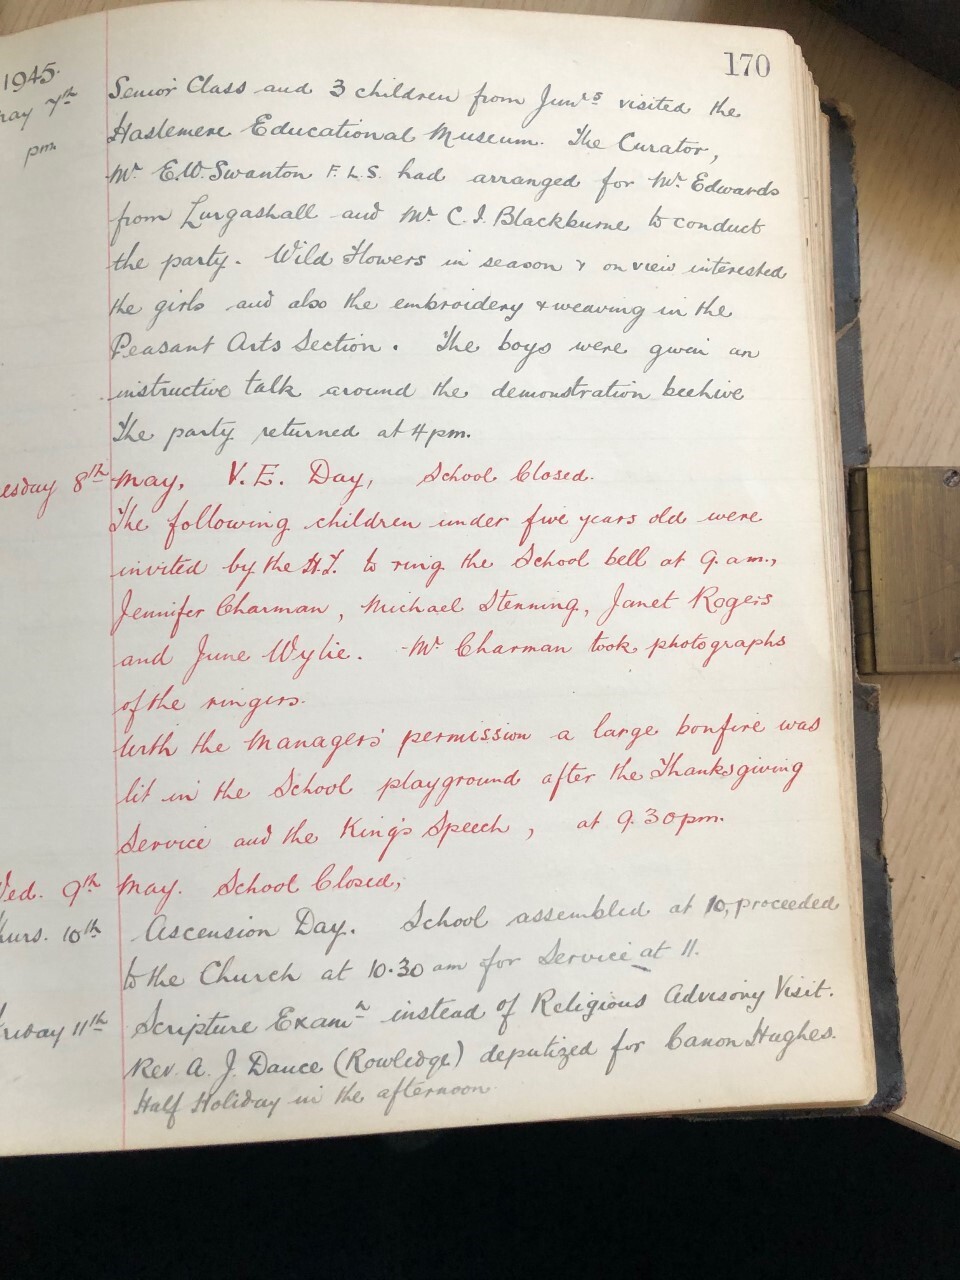 170
1945.
May 7th Senior Class and 3 children from Junrs visited the
pm. Haslemere Educational Museum. The Curator,
Mr E.W. Swanton F.L.S. had arranged for Mr Edwards
from Lurgashall and Mr C. I. Blackburne to conduct
the party. Wild Flowers in season & on view interested
the girls and also the embroidery & weaving in the
Peasant Arts Section. The boys were given an
instructive talk around the demonstration beehive
The party returned at 4 pm.
esday 8th May, V.E. Day, School Closed.
The following children under five years old were
invited by the H.T. to ring the School bell at 9 a.m.,
Jennifer Charman, Michael Stenning, Janet Rogers
and June Wylie. Mr Charman took photographs
of the ringers.
With the Managers' permission a large bonfire was
lit in the School playground after the Thanksgiving
Service and the King's Speech, at 9.30 pm.
Wed. 9th May. School Closed,
hurs. 10th Ascension Day. School assembled at 10, proceeded
to the Church at 10.30 am for Service at 11.
Friday 11th Scripture Examn instead of Religious Advisory Visit.
Rev. A. J. Dance (Rowledge) deputized for Canon Hughes.
Half Holiday in the afternoon